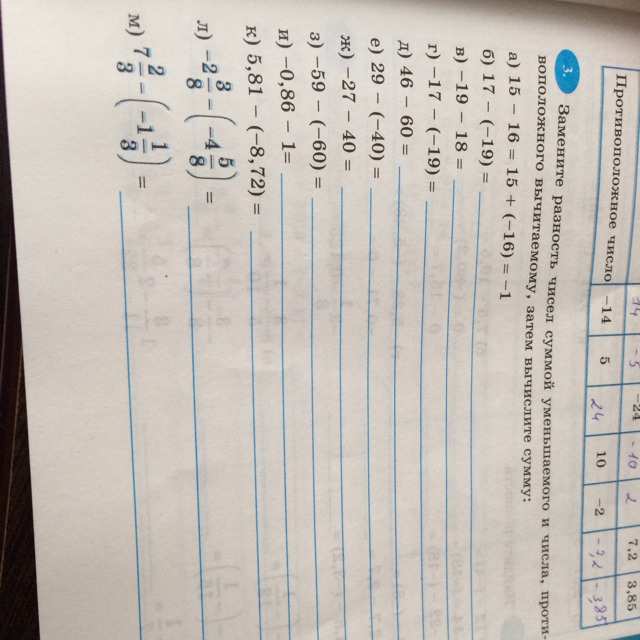 14 -5 -24 -10 2 7,2 3,85
Противоположное число -14 5 24 10 -2 -7,2 -3,85
3. Замените разность чисел суммой уменьшаемого и числа, проти-
воположного вычитаемому, затем вычислите сумму:
а) 15 − 16 = 15 + (−16) = −1
б) 17 − (−19) =
в) −19 − 18 =
г) −17 − (−19) =
д) 46 − 60 =
е) 29 − (−40) =
ж) −27 − 40 =
з) −59 − (−60) =
и) −0,86 − 1=
к) 5,81 − (−8,72) =
л) −2 3/8 − (−4 5/8) =
м) 7 2/3 − (−1 1/3) =